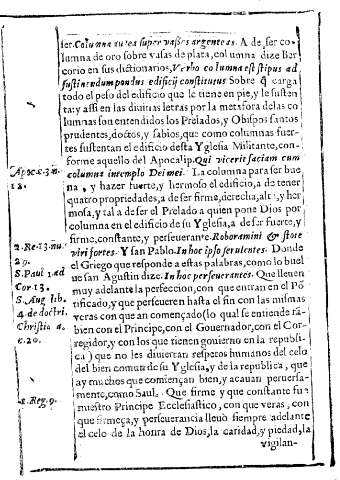 ser. Columna aurea super vasses argenteas. A de ser co-
lumna de oro sobre vasas de plata, columna dize Ber
corio en sus dictionarios, Verbo columna est stipus ad
sustinendum pondus edificij constitutus Sobre q̃ carga
todo el peso del edificio que le tiene en pie, y le susten
ta: y assi en las diuinas letras por la metafora delas co
lumnas son entendidos los Prelados, y Obispos santos
prudentes, doctos, y sabios, que como columnas fuer-
tes sustentan el edificio desta Yglesia Militante, con-
forme aquello del Apocalip. Qui vicerit faciam eum
columna in templo Dei mei. La columna para ser bue
na, y hazer fuerte, y hermoso el edificio, a de tener
quatro propriedades, a de ser firme, derecha, alta, y her
mosa, y tal a de ser el Prelado a quien pone Dios por
columna en el edificio de su Yglesia, a de ser fuerte, y
firme, constante, y perseuerante. Roboramini & estote
viri fortes. Y san Pablo. In hoc ipso ferulentes. Donde
el Griego que responde a estas palabras, como lo buel
ue san Agustin dize. In hoc perseuerantes. Que lleuen
muy adelante la perfeccion, con que entran en el Põ
tificado, y que perseueren hasta el fin con las mismas
veras con que an començado (lo qual se entiende tã
bien con el Principe, con el Gouernador, con el Cor-
regidor, y con los que tienen gouierno en la republi
ca) que no les diuiertan respetos humanos del celo
del bien comun de su Yglesia, y de la republica, que
ay muchos que comiençan bien, y acauan peruersa-
mente, como Saul. Que firme y que constante fue
nuestro Principe Ecclesiastico, con que veras, con
que firmeça, y perseuerancia lleuò siempre adelante
el celo de la honra de Dios, la caridad, y piedad, la
vigilan-
Apoc. c. 3. n.
12.
2. Re. 13. nu.
29.
S. Paul 1. ad
Cor 13.
S. Aug lib.
4. de doctri.
Christia 4.
c. 20.
1. Reg. 9.